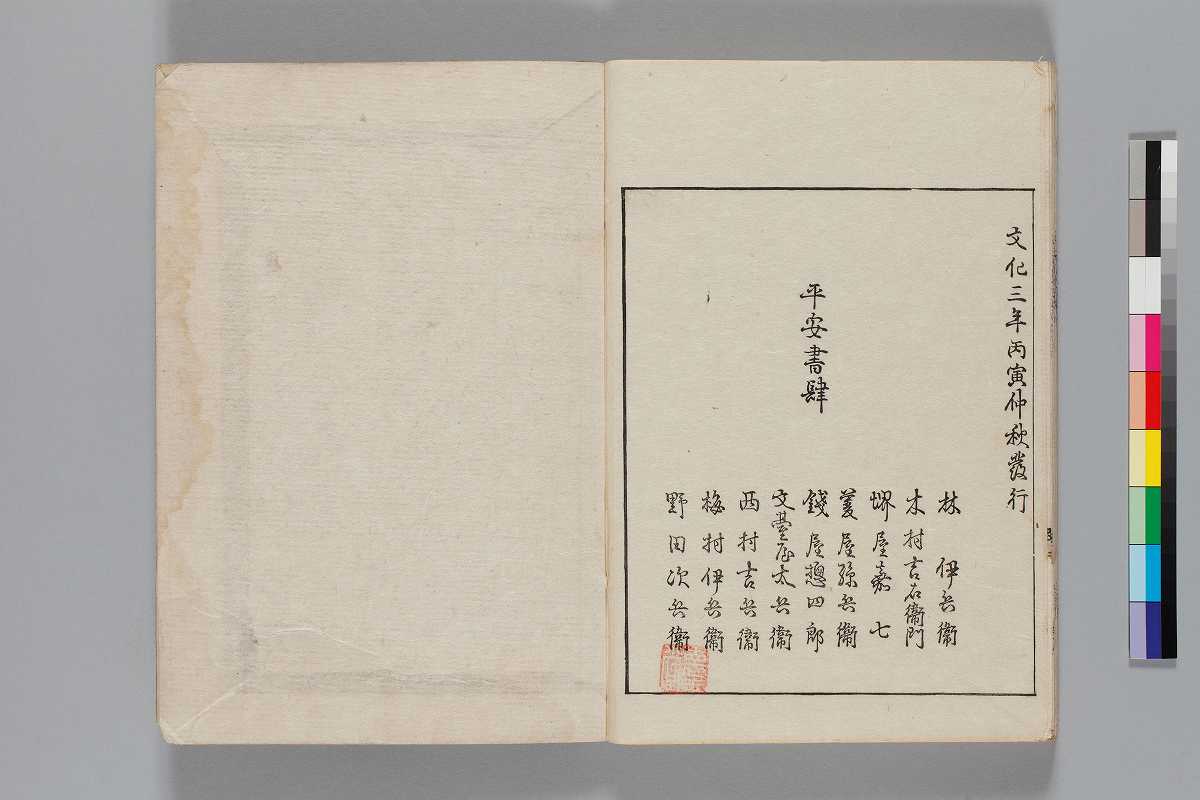 文化三年丙寅仲秋發行
平安書肆
林伊兵衞
木村吉右衞門
堺屋嘉七
菱屋孫兵衞
錢屋摠四郎
文臺屋太兵衞
西村吉兵衞
梅村伊兵衞
野田次兵衞